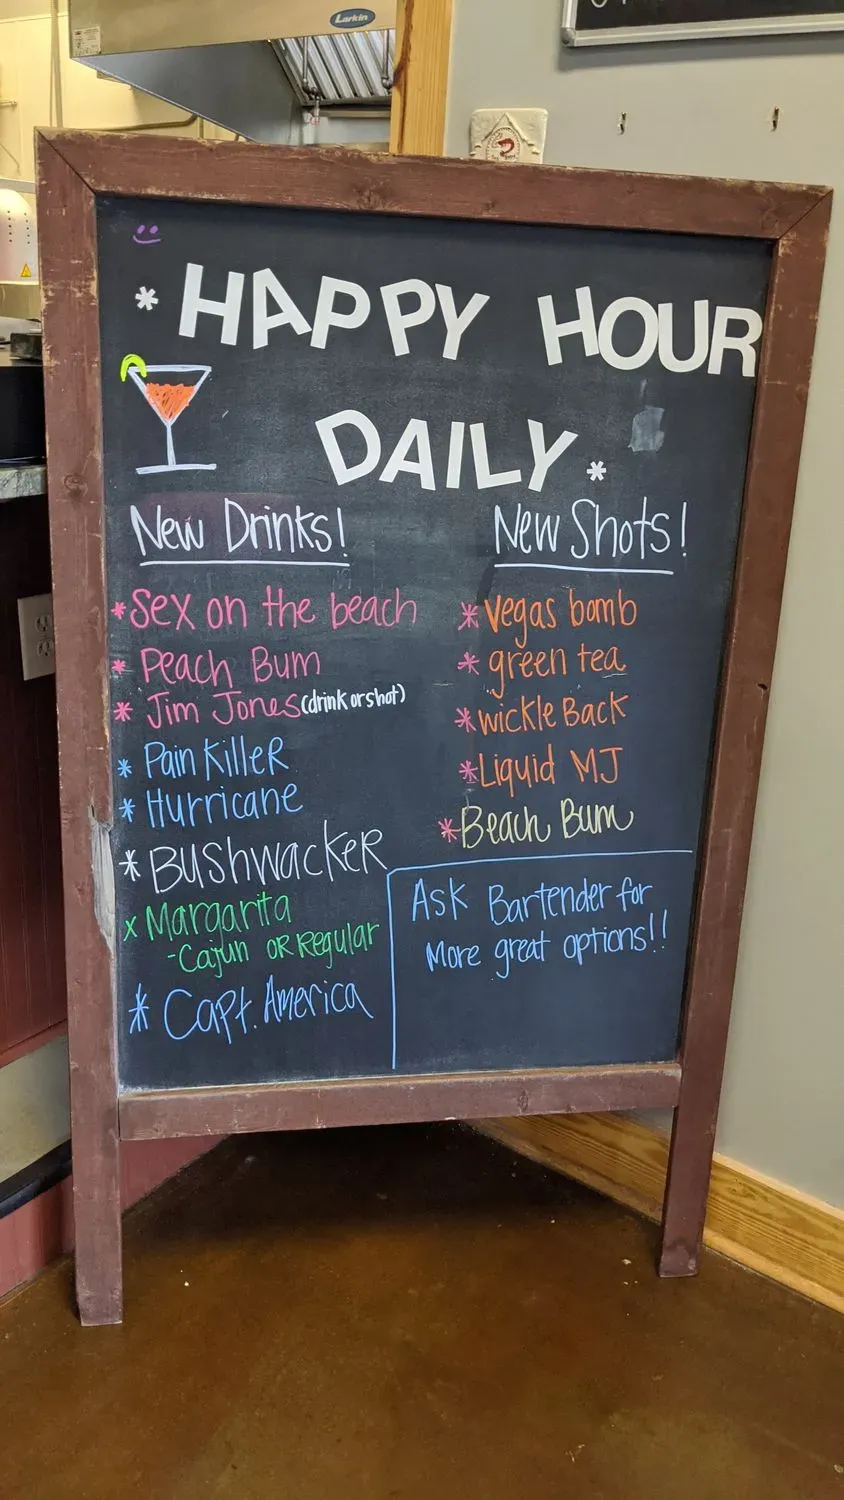 Larkin
* HAPPY HOUR
DAILY *
New Drinks!
* Sex on the beach
* Peach Bum
* Jim Jones (drink or shot)
* Pain Killer
* Hurricane
* Bushwacker
x Margarita
- Cajun or Regular
* Capt. America
New Shots!
* Vegas bomb
* green tea
* wickle Back
* Liquid MJ
* Beach Bum
Ask Bartender for
More great options!!